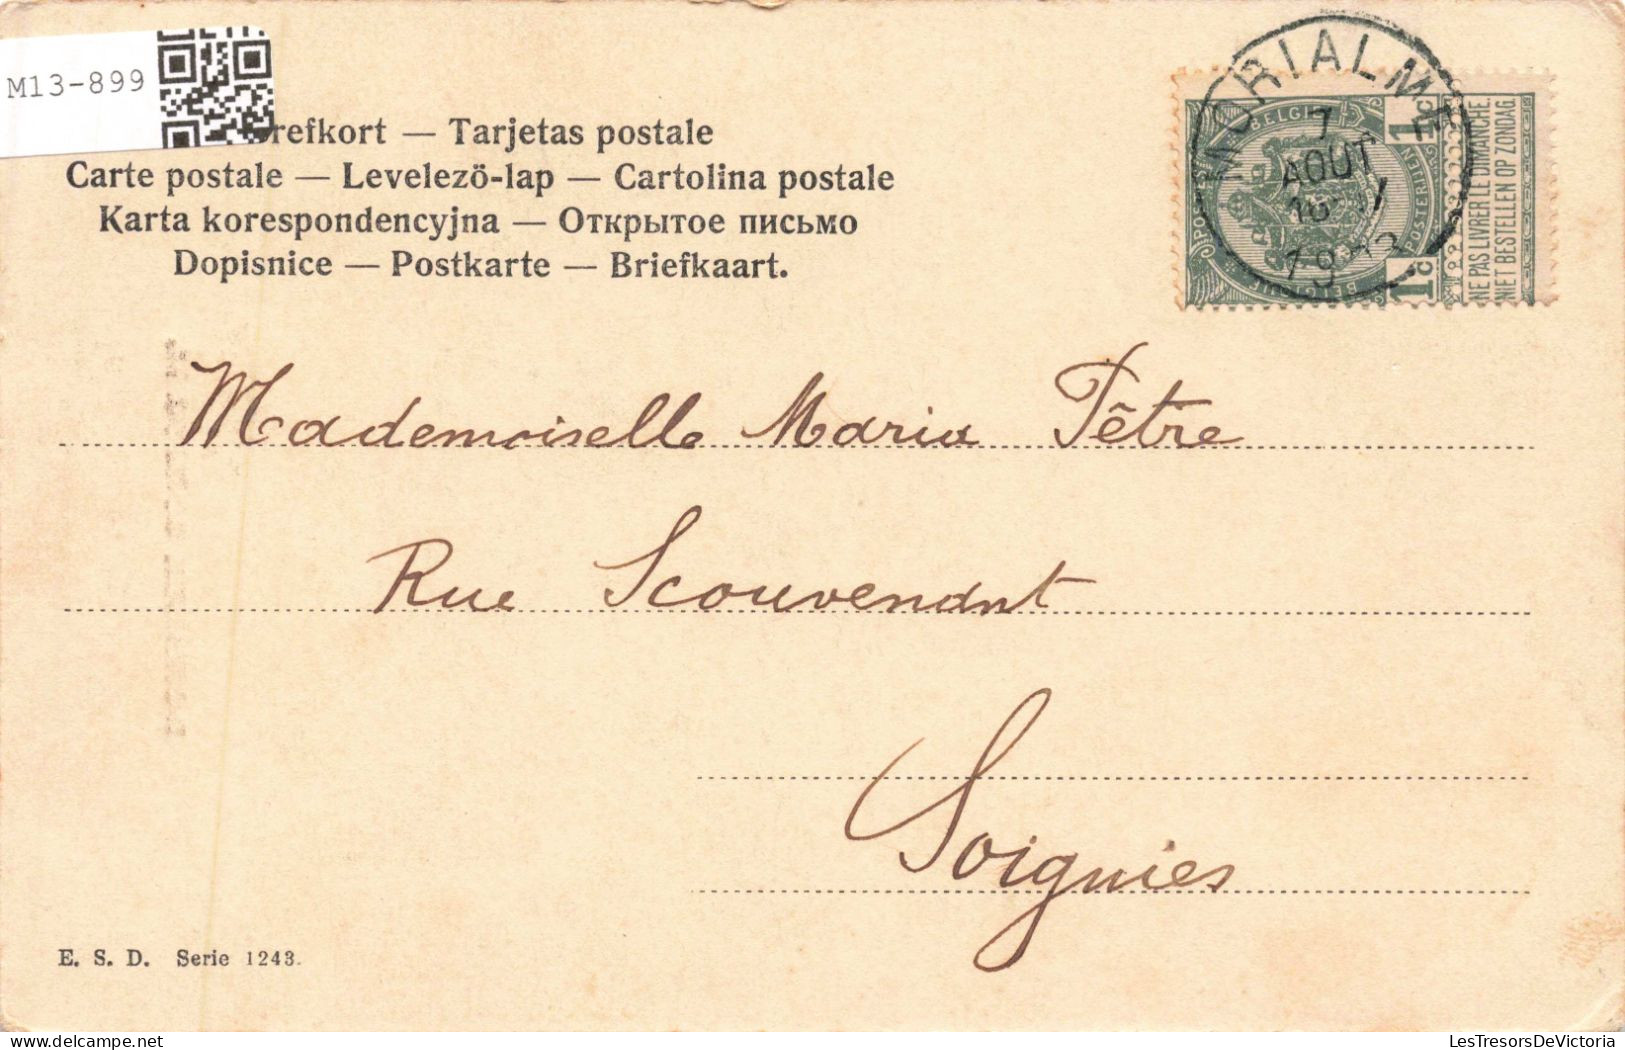 M13-899
refkort — Tarjetas postale
Carte postale — Levelezö-lap — Cartolina postale
Karta korespondencyjna — Открытое письмо
Dopisnice — Postkarte — Briefkaart.
MORIALMÉ
7
AOUT
1903
BELGIQUE
1c
1c
NE PAS LIVRER LE DIMANCHE.
NIET BESTELLEN OP ZONDAG.
Mademoiselle Maria Pêtre
Rue Scouvendnt
Soignies
E. S. D. Serie 1243.
LesTresorsDeVictoria